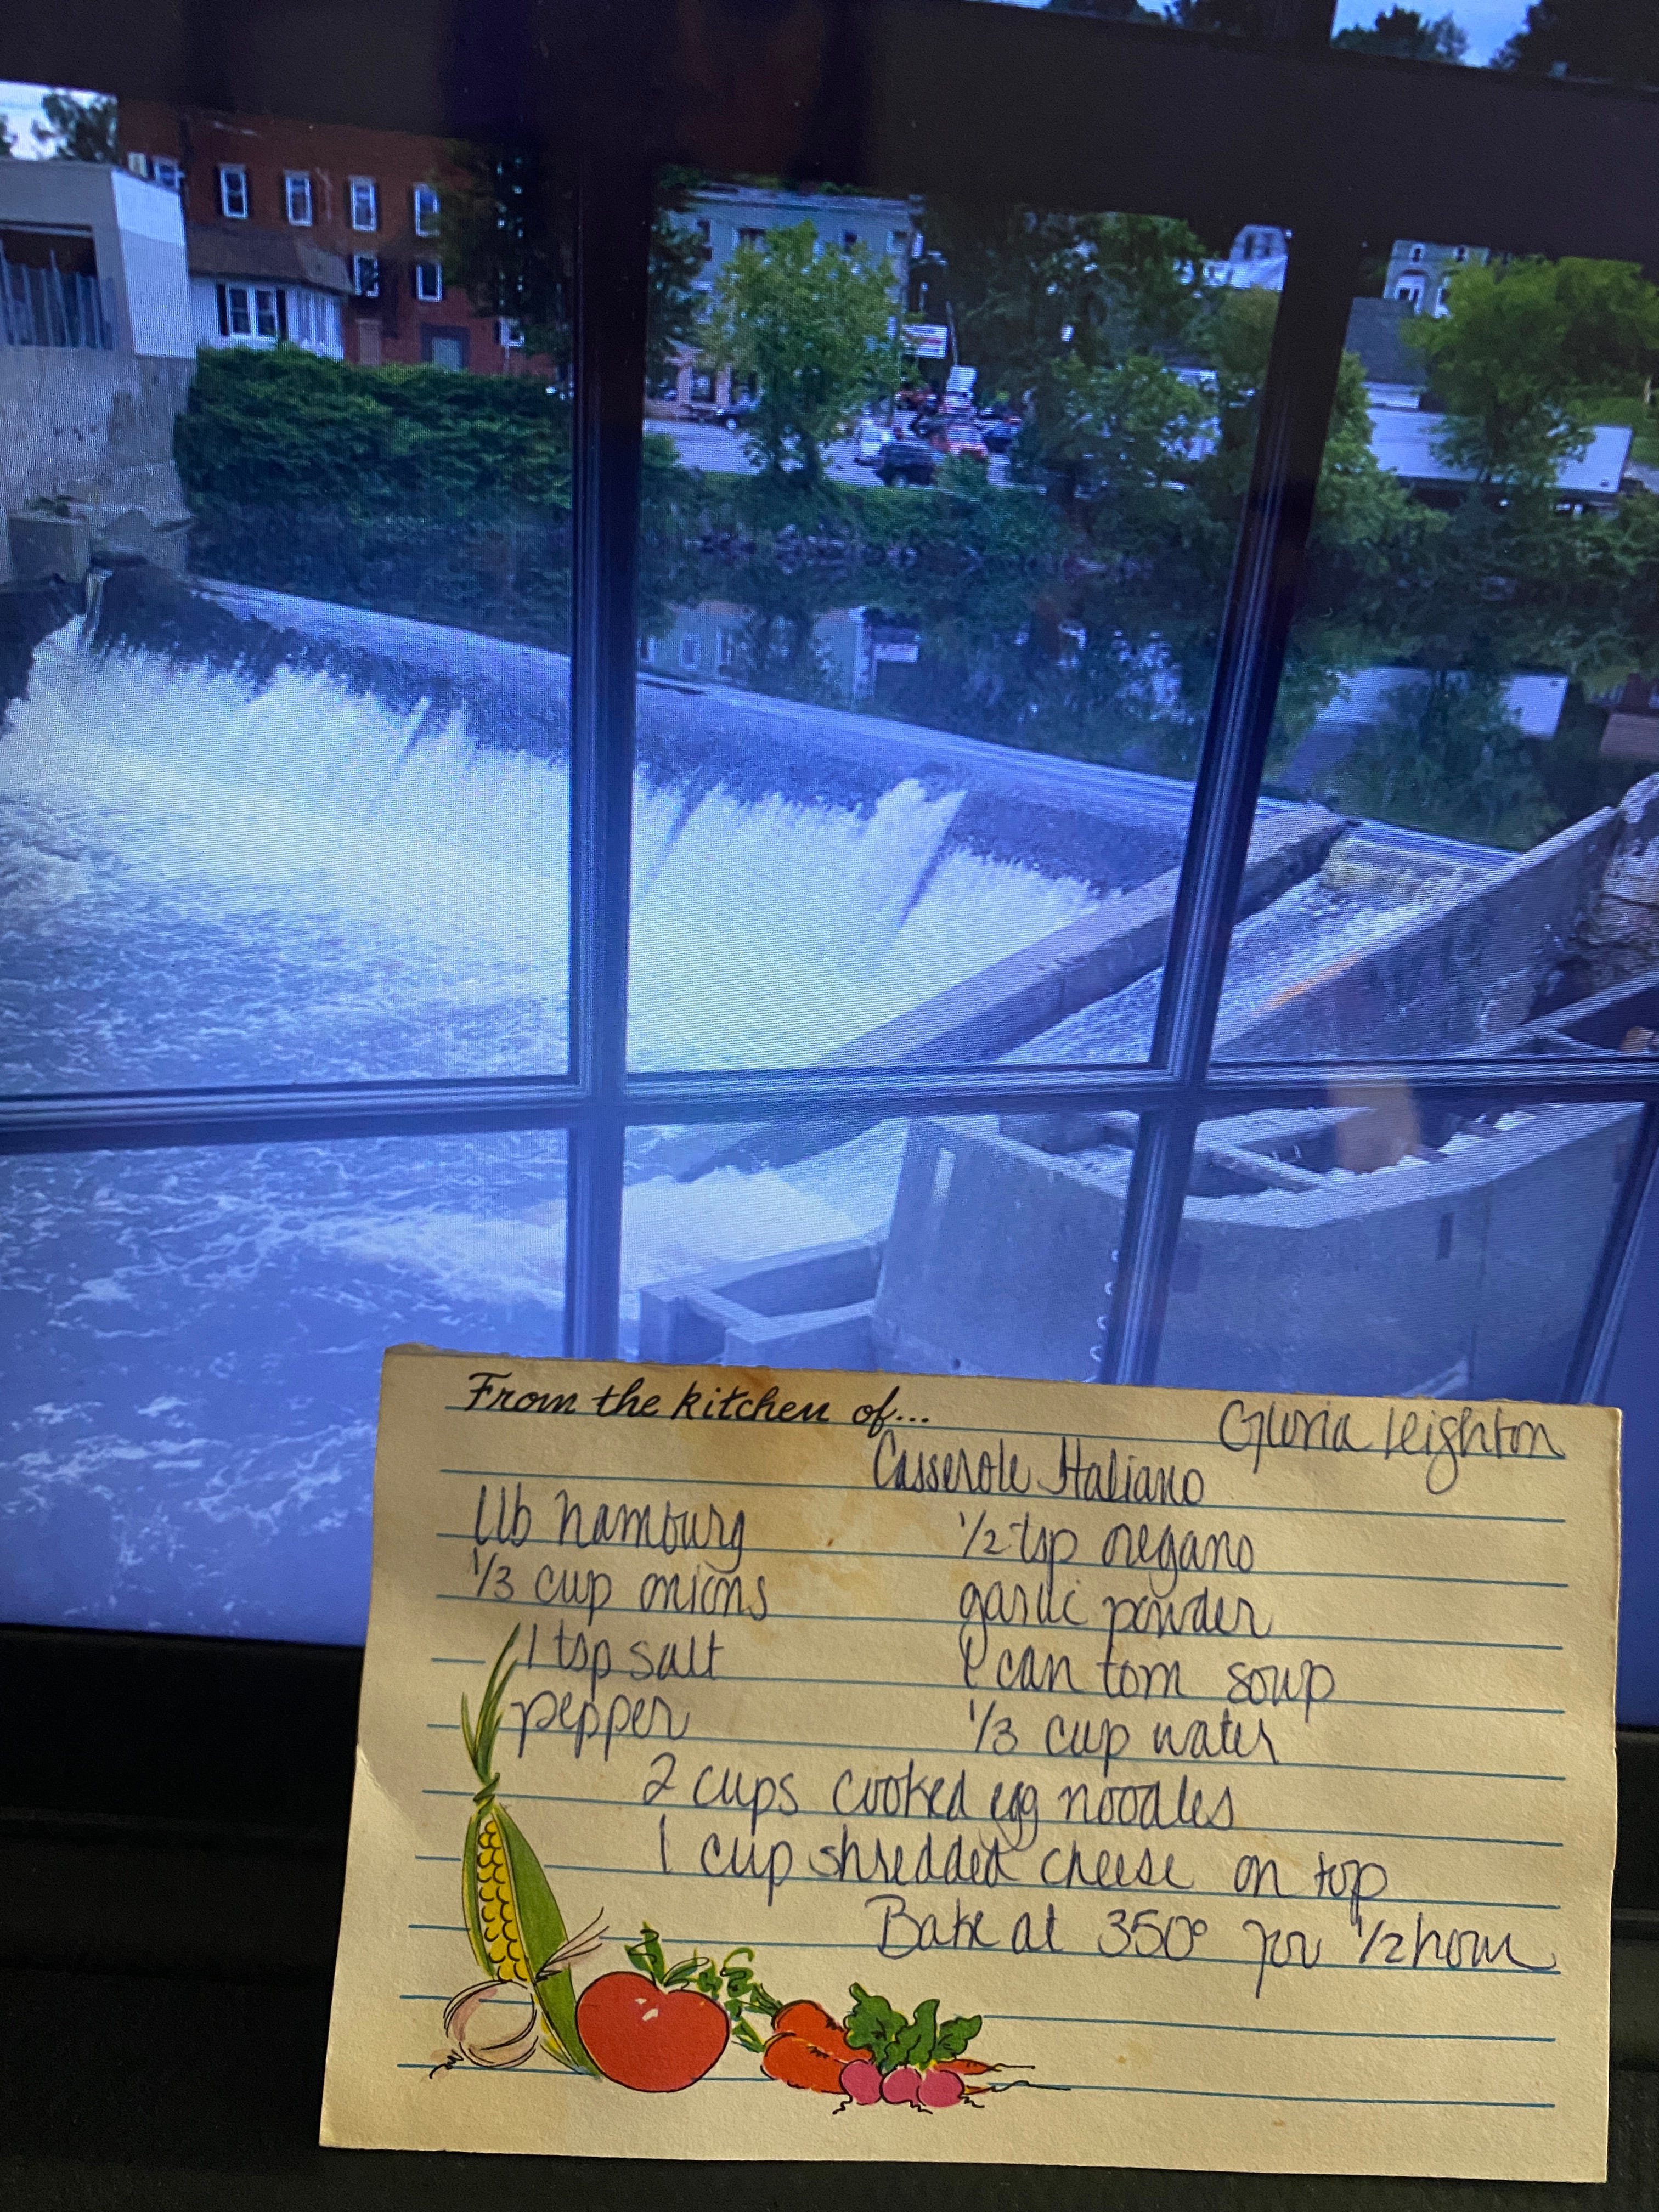 From the kitchen of... Gloria Leighton
Casserole Italiano
1 lb hamburg 1/2 tsp oregano
1/3 cup onions garlic powder
1 tsp salt 1 can tom soup
pepper 1/3 cup water
2 cups cooked egg noodles
1 cup shredded cheese on top
Bake at 350° for 1/2 hour